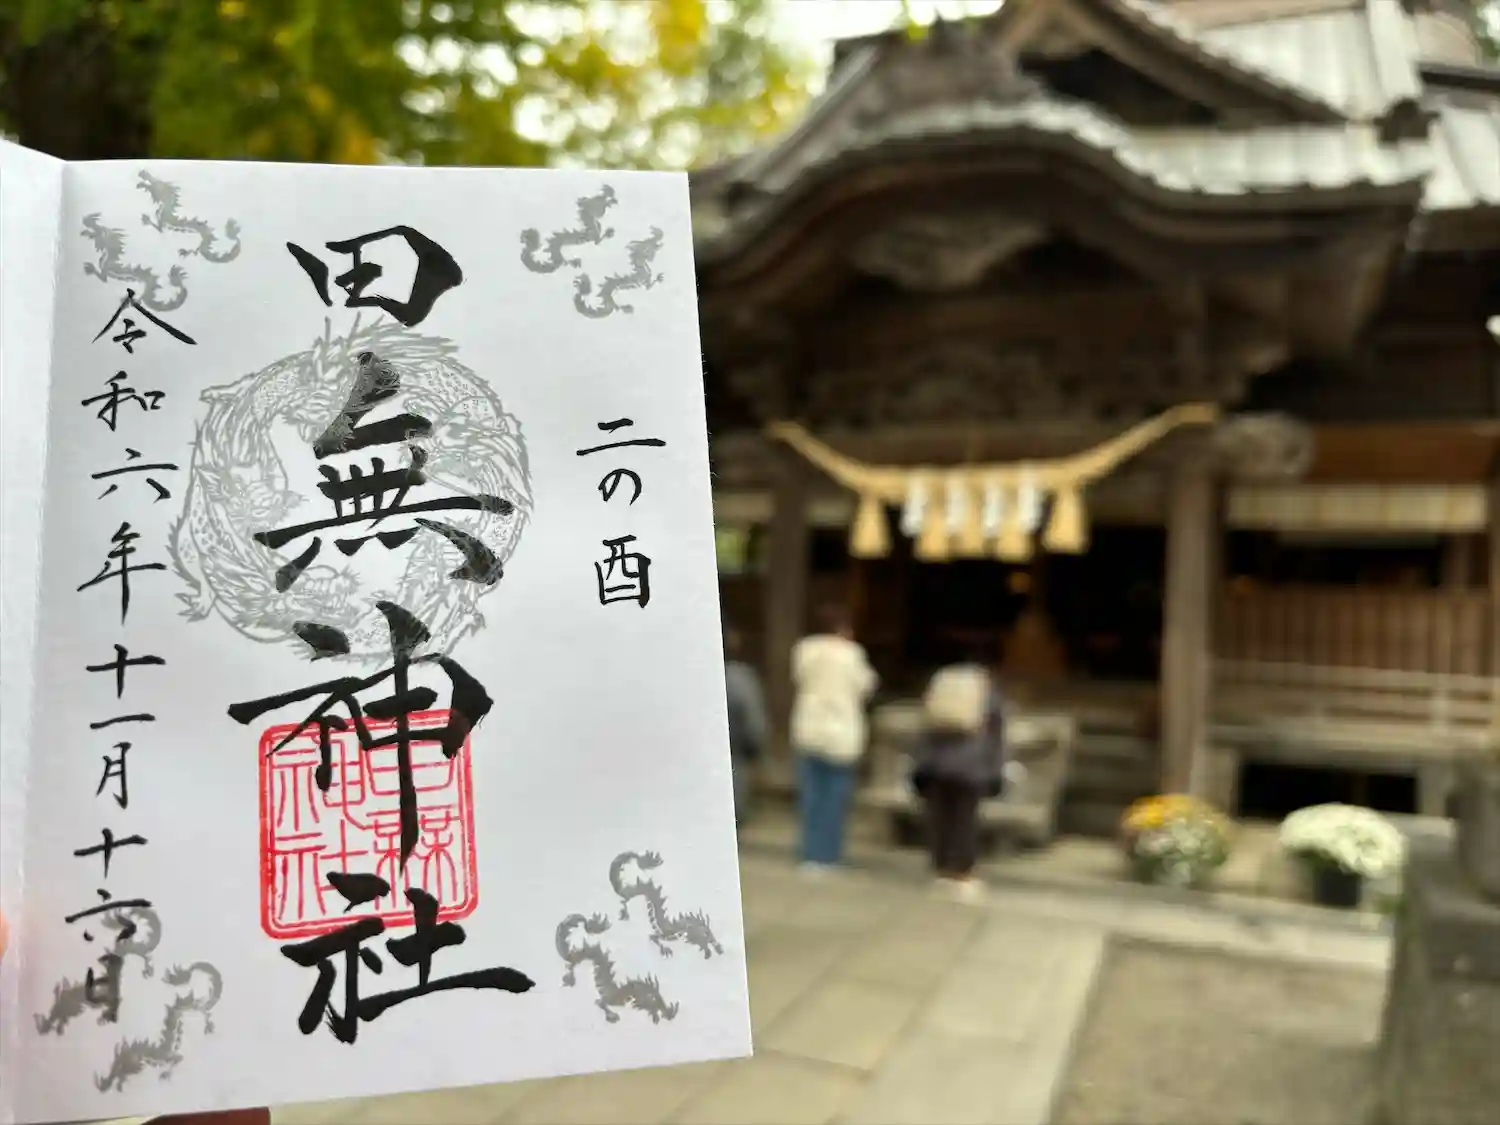 二の酉
田無神社
田無神社
令和六年十一月十六日